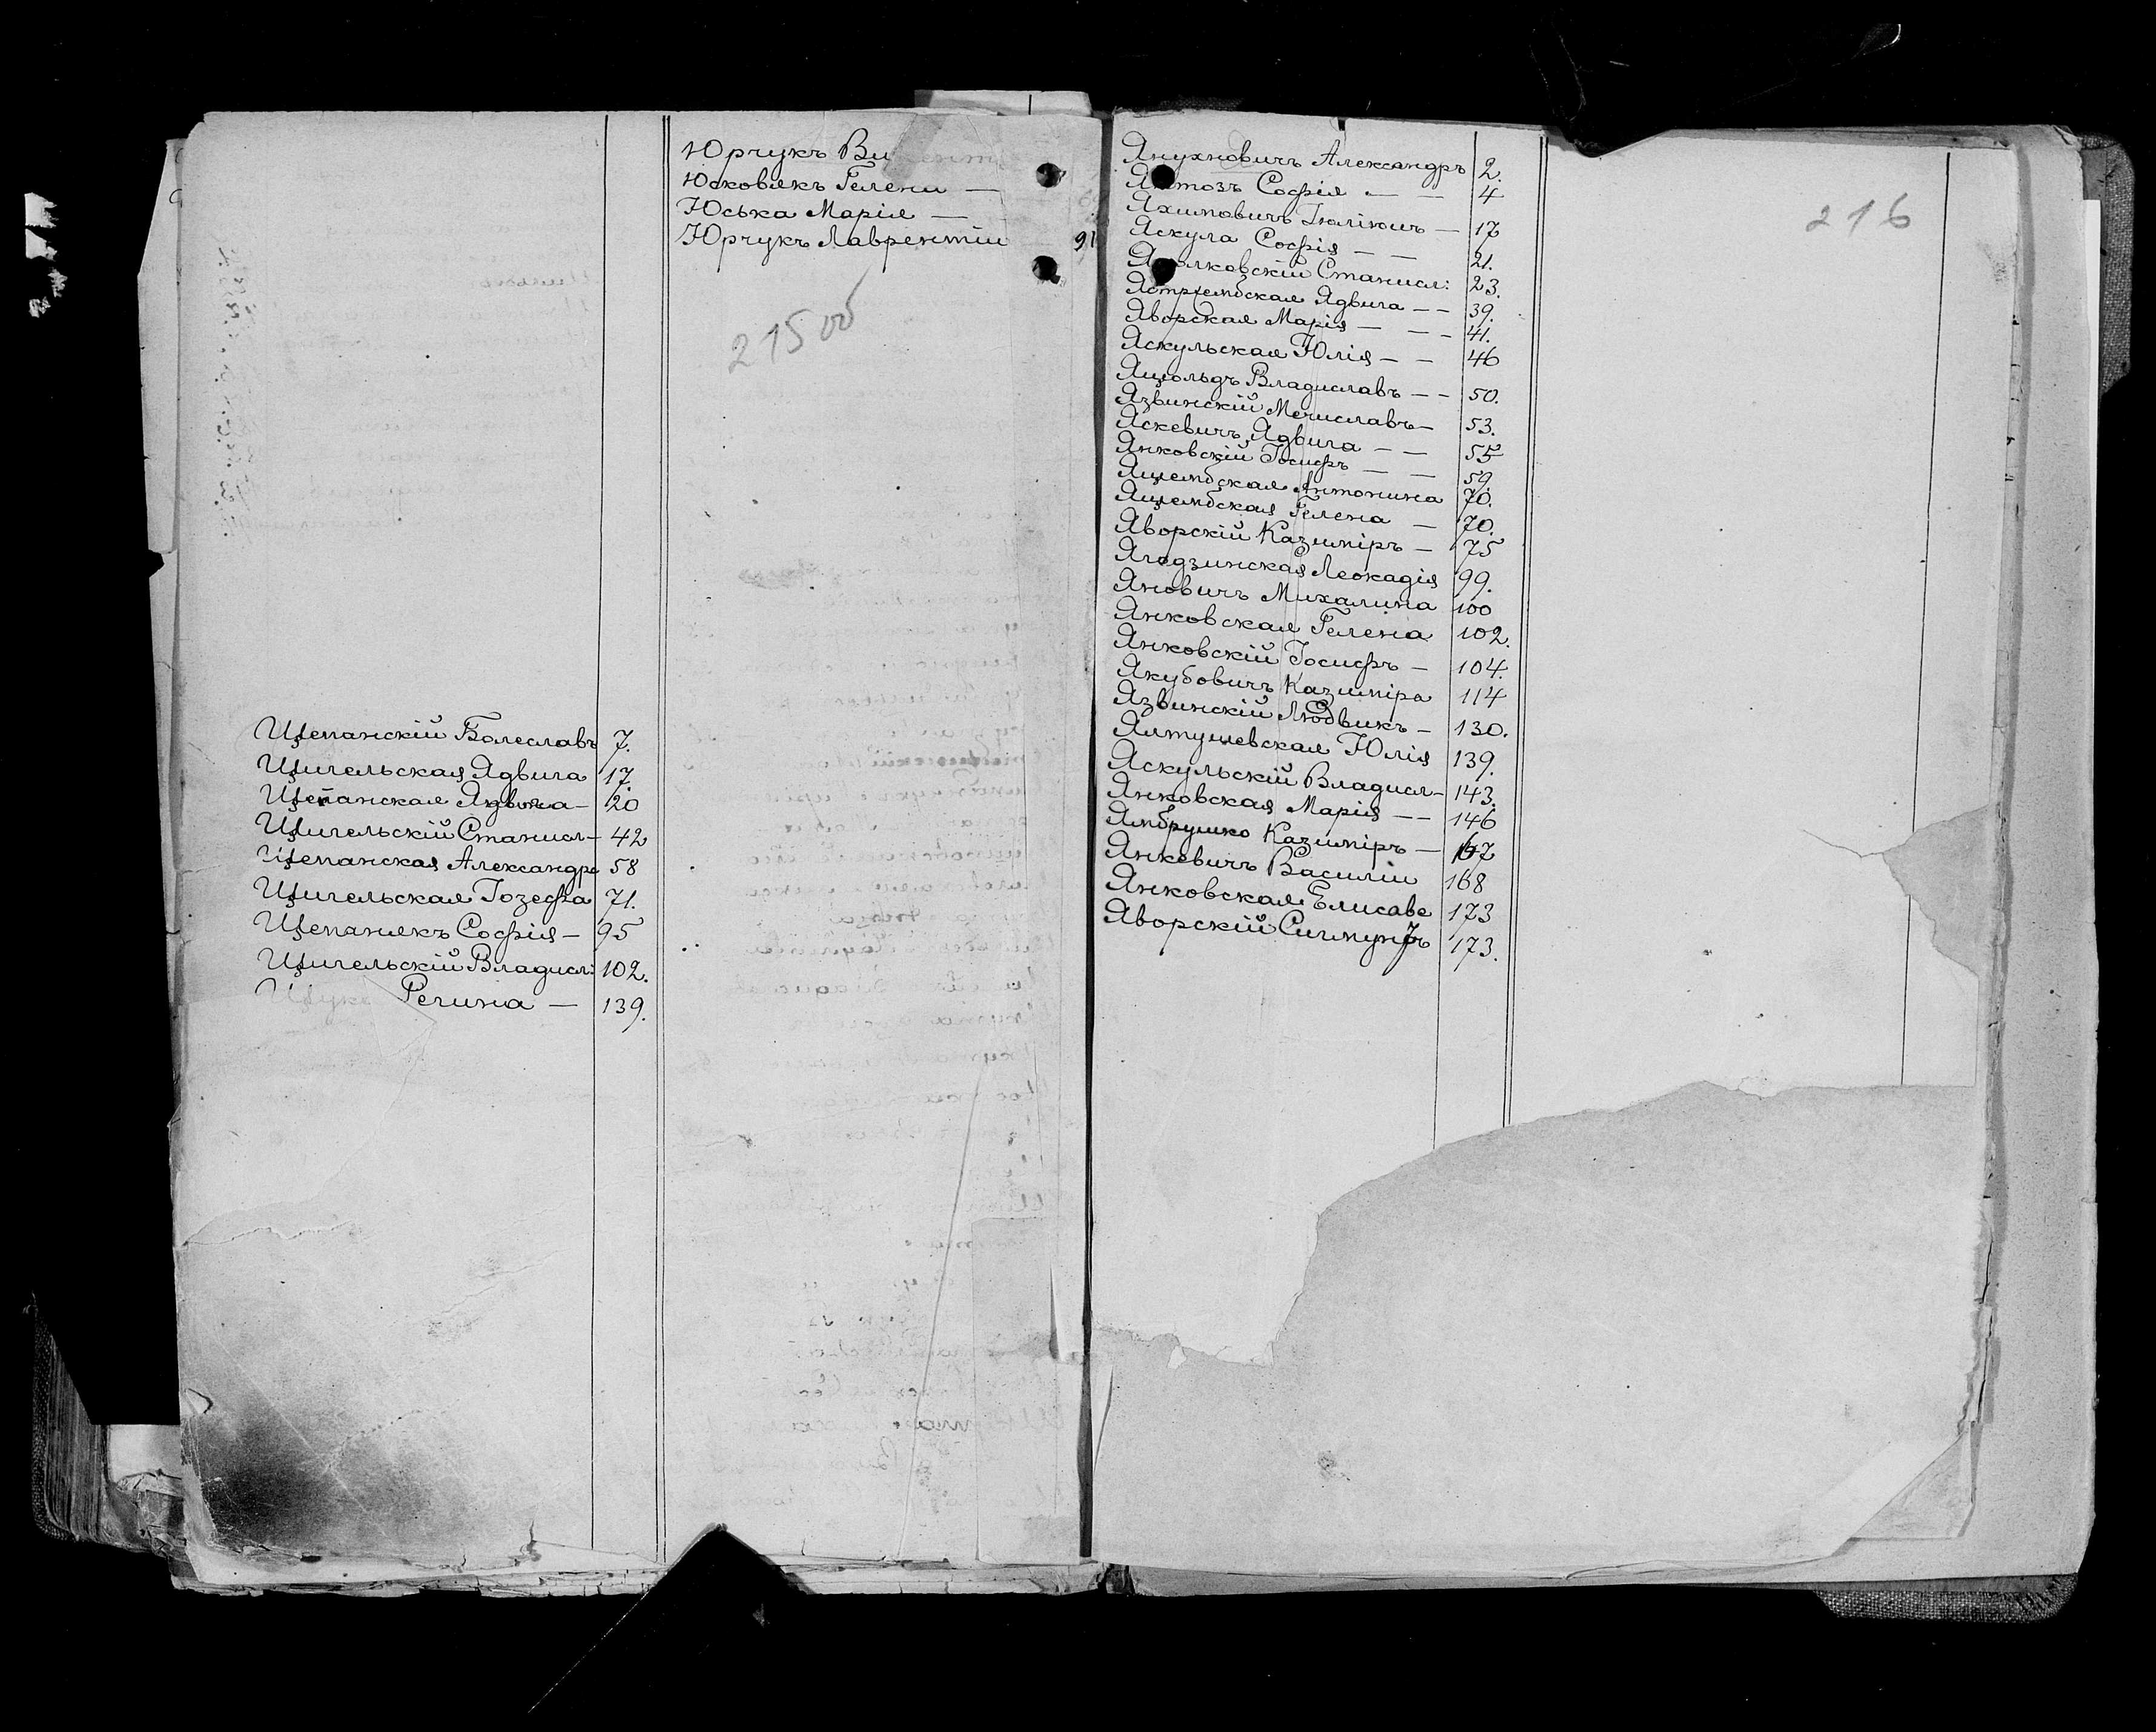 Щепанскій Болеславъ 7.
Щигельская Ядвига 17.
Щепанская Ядвига — 20
Щигельскій Станисл — 42
Щепанская Александра 58
Щигельская Іозефа 71.
Щепанякъ Софія — 95
Щигельскій Владисл: 102.
Регина — 139.
Юрчукъ
Юсковякъ Гелена —
Юська Марія —
Юрчукъ Лаврентій 91
215 об
Янухновичъ Александръ 2.
Софія — — 4
Яхимовичъ Іюліянъ — 17
Яскула Софія — — 21.
Станисл: 23.
Ястржембская Ядвига — — 39.
Яворская Марія — — — 41.
Яскульская Юлія — — 46
Яцольдъ Владиславъ — — 50.
Язвинскій Мечиславъ — 53.
Яскевичъ Ядвига — — 55
Янковскій Іосифъ — — 59.
Яцембская Антонина 70.
Яцембская Гелена — 70.
Яворскій Казиміръ — 75
Ягодзинская Леокадія 99.
Яновичъ Михалина 100
Янковская Гелена 102.
Янковскій Іосифъ — 104.
Якубовичъ Казиміра 114
Язвинскій Людвикъ — 130.
Ялтушевская Юлія 139.
Яскульскій Владисл — 143.
Янковская Марія — — 146
Ямбрушко Казиміръ — 167
Янкевичъ Василій 168
Янковская Елисаве 173
Яворскій Сигмундъ 173.
216